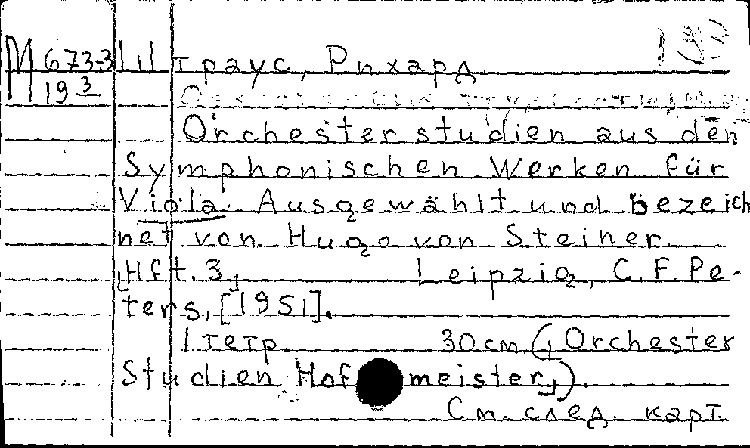 М 673-3 Штраус, Рихард
19 3
Orchesterstudien aus den
Symphonischen Werken für
Viola. Ausgewählt und bezeich
net von Hugo von Steiner
Hft. 3, Leipzig, C. F. Pe-
ters, [1951].
1 тетр 30 см (Orchester
Studien Hofmeister).
См. след. карт.